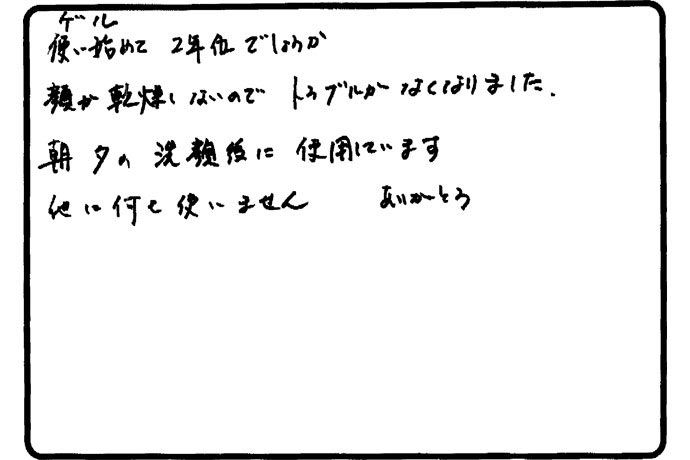 ゲル
使い始めて 2年位でしょうか
顔が乾燥しないので トラブルがなくなりました.
朝夕の洗顔後に使用しています
他に何も使いません ありがとう